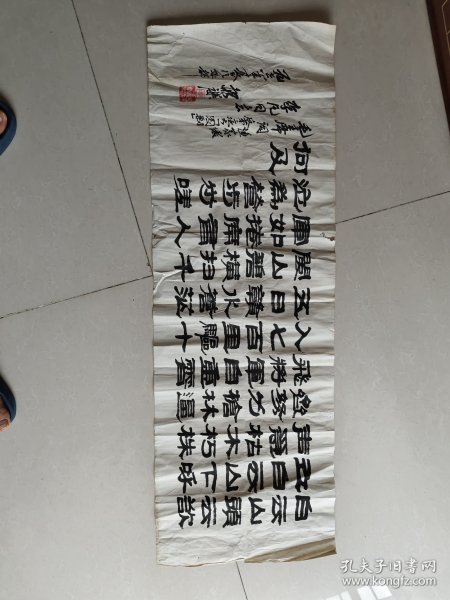 白云山頭云欲
立白云山下呼
声急枯木朽株
齊努力槍林逼
飛將軍自重霄
入七百里驅十
五日贛水蒼茫
閩山碧橫扫千
軍如捲席有人
泣為營步步嗟
何及
毛主席詞
同志
孔夫子旧书网
www.kongfz.com